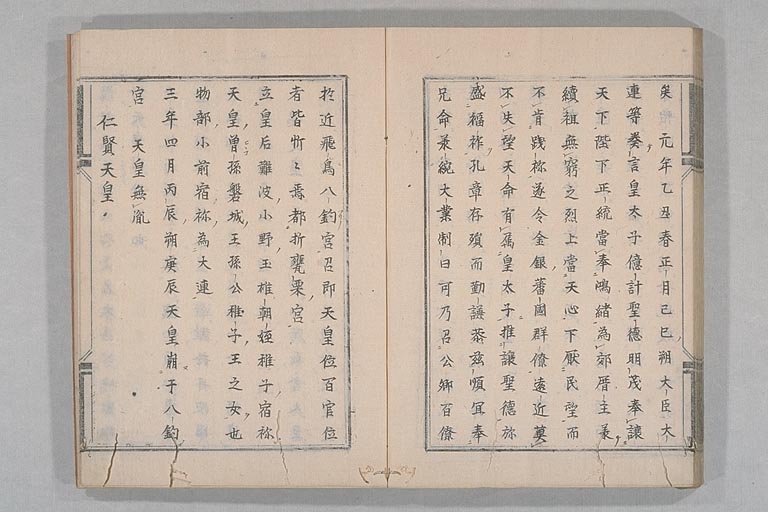 矣元年乙丑春正月己巳朔大臣大
連等奏言皇太子億計聖德明茂奉讓
天下陛下正統當奉鴻緒為郊廟主承
續祖無窮之烈上當天心下厭民望而
不肯踐祚遂令金銀蕃國群僚遠近莫
不失望天命有属皇太子推讓聖德弥
盛福祚孔章在孺而勤謙恭慈順宜奉
兄命承統大業制曰可乃召公卿百僚
於近飛鳥八釣宮召即天皇位百官位
者皆忻〻焉都折甕栗宮
立皇后難波小野王雄朝姪稚子宿祢
天皇曽孫磐城王孫公稚子王之女也
物部小前宿祢為大連
三年四月丙辰朔庚辰天皇崩于八釣
宮 天皇無胤
仁賢天皇